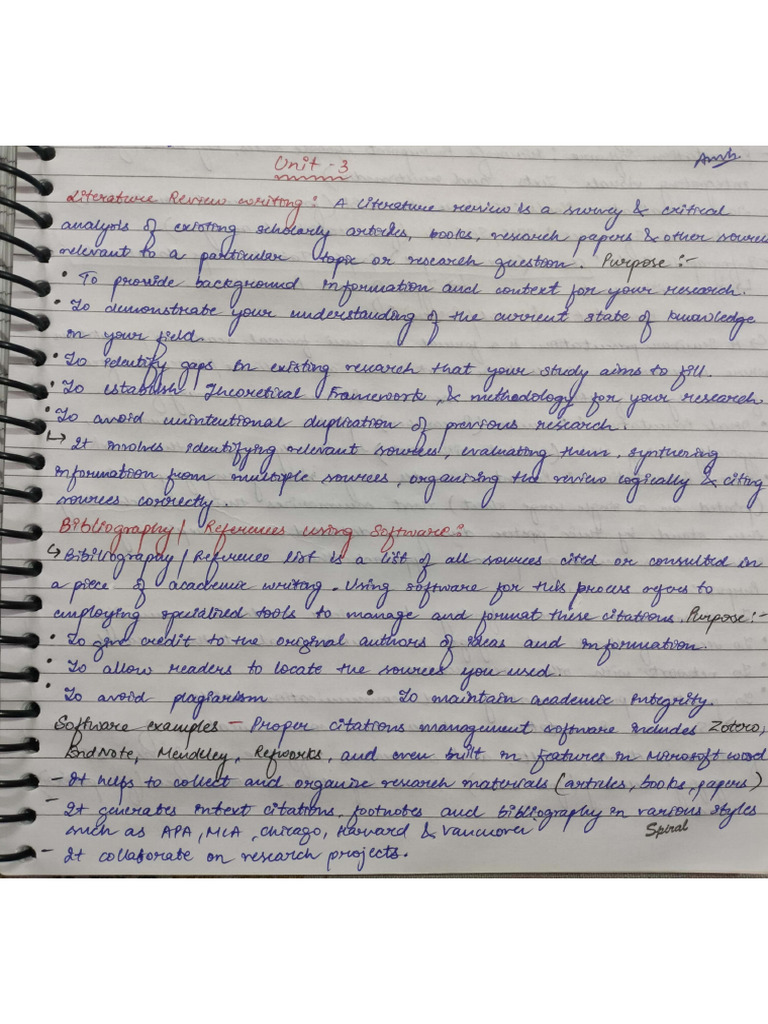 Unit - 3
Literature Review writing : A literature review is a survey & critical
analysis of existing scholarly articles, books, research papers & other sources
relevant to a particular topic or research question. Purpose :-
• To provide background information and context for your research.
• To demonstrate your understanding of the current state of knowledge
in your field.
• To identify gaps in existing research that your study aims to fill.
• To establish Theoretical Framework, & methodology for your research.
• To avoid unintentional duplication of previous research.
↳ It involves identifying relevant sources, evaluating them, synthering
information from multiple sources, organising the review logically & citing
sources correctly.
Bibliography / References using Software :
↳ Bibiliography / Reference list is a list of all sources cited or consulted in
a piece of academic writing. Using software for this process refers to
employing specialized tools to manage and format these citations. Purpose :-
• To give credit to the original authors of ideas and information.
• To allow readers to locate the sources you used.
• To avoid plagiarism • To maintain academic integrity.
Software examples - Proper citations management software includes Zotero,
EndNote, Mendeley, Refworks, and even built in features in Microsoft word
- It helps to collect and organize research materials (articles, books, papers)
- It generates intext citations, footnotes and bibliography in various styles
such as APA, MLA, Chicago, Harvard & Vancuover Spiral
- It collaborate on research projects.